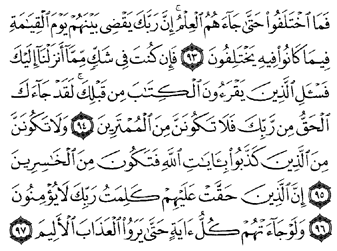 فَمَا ٱخْتَلَفُوا۟ حَتَّىٰ جَآءَهُمُ ٱلْعِلْمُ ۚ إِنَّ رَبَّكَ يَقْضِى بَيْنَهُمْ يَوْمَ ٱلْقِيَٰمَةِ
فِيمَا كَانُوا۟ فِيهِ يَخْتَلِفُونَ ٩٣ فَإِن كُنتَ فِى شَكٍّ مِّمَّآ أَنزَلْنَآ إِلَيْكَ
فَسْـَٔلِ ٱلَّذِينَ يَقْرَءُونَ ٱلْكِتَٰبَ مِن قَبْلِكَ ۚ لَقَدْ جَآءَكَ
ٱلْحَقُّ مِن رَّبِّكَ فَلَا تَكُونَنَّ مِنَ ٱلْمُمْتَرِينَ ٩٤ وَلَا تَكُونَنَّ
مِنَ ٱلَّذِينَ كَذَّبُوا۟ بِـَٔايَٰتِ ٱللَّهِ فَتَكُونَ مِنَ ٱلْخَٰسِرِينَ
٩٥ إِنَّ ٱلَّذِينَ حَقَّتْ عَلَيْهِمْ كَلِمَتُ رَبِّكَ لَا يُؤْمِنُونَ
٩٦ وَلَوْ جَآءَتْهُمْ كُلُّ ءَايَةٍ حَتَّىٰ يَرَوُا۟ ٱلْعَذَابَ ٱلْأَلِيمَ ٩٧